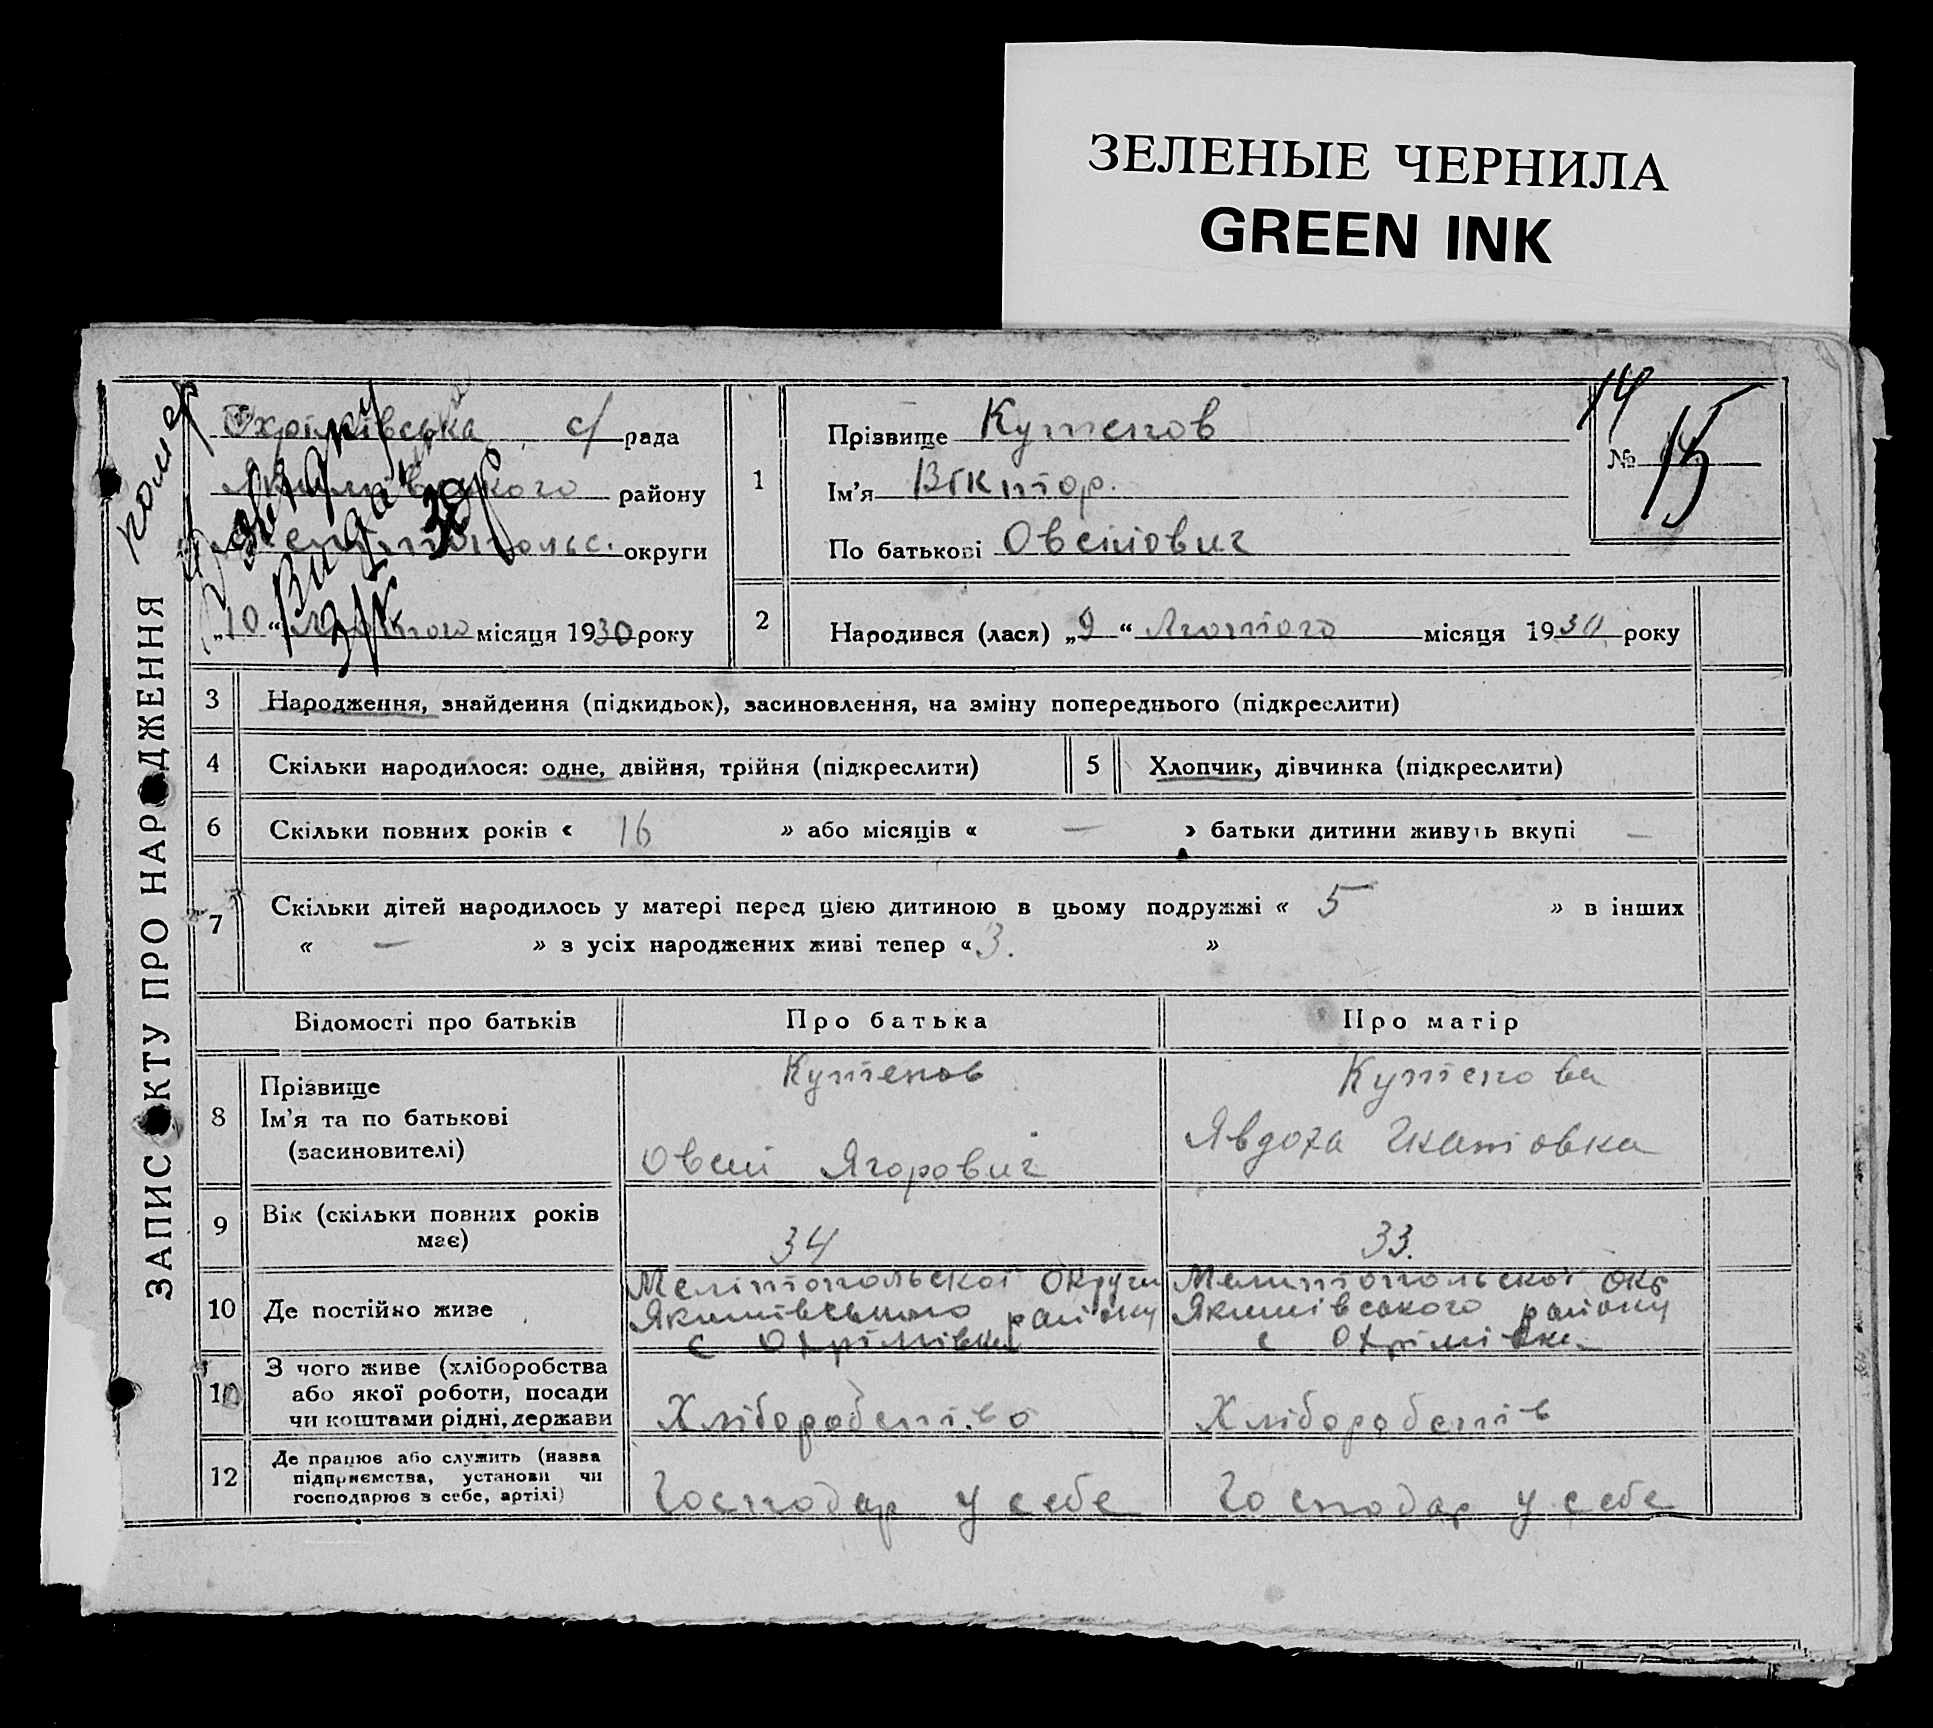 ЗЕЛЕНЫЕ ЧЕРНИЛА
GREEN INK
ЗАПИС КТУ ПРО НАР ДЖЕННЯ
Охрімівська с/ рада
району
Мелітопольс. округи
„10“ Лютого місяця 1930 року
1
Прізвище Кутепов
Ім'я Віктор.
По батькові Овсійович
14
№ 15
2
Народився (лася) „9“ Лютого місяця 1930 року
3
Народження, знайдення (підкидьок), засиновлення, на зміну попереднього (підкреслити)
4
Скільки народилося: одне, двійня, трійня (підкреслити)
5
Хлопчик, дівчинка (підкреслити)
6
Скільки повних років « 16 » або місяців « — » батьки дитини живуть вкупі —
7
Скільки дітей народилось у матері перед цією дитиною в цьому подружжі « 5 » в інших
« — » з усіх народжених живі тепер « 3. »
Відомості про батьків
Про батька
Про матір
8
Прізвище
Ім'я та по батькові
(засновителі)
Кутепов
Овсій Ягорович
Кутепова
Явдоха Ікатовка
9
Вік (скільки повних років
має)
34
33.
10
Де постійно живе
Мелітопольскої Округи
Якимівського району
с Охрімівка
Мелитопольскої окр
Якимівського району
с Охрімівка
11
З чого живе (хліборобства
або якої роботи, посади
чи коштами рідні, держави
Хліборобство
Хліборобств
12
Де працює або служить (назва
підприємства, установи чи
господарює в себе, артілі)
Господар у себе
Господар у себе